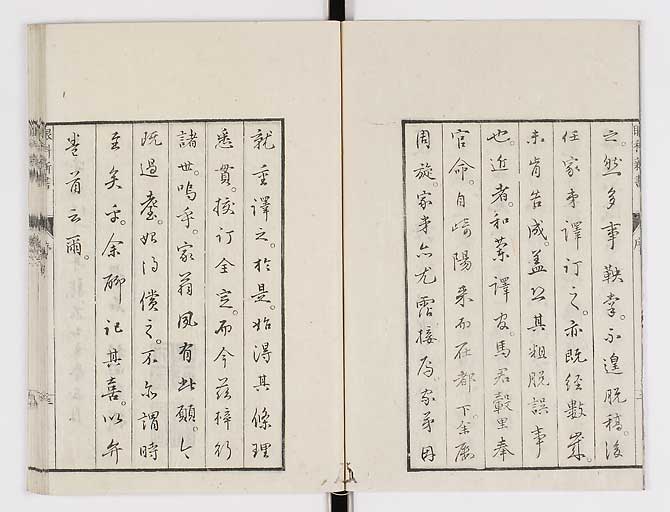 之。然多事鞅掌。不遑脱稿。後
任家弟譯訂之。亦既經數歳。
未肯告成。蓋以其粗脱誤事
也。近者和蘭譯官馬君轂里奉
官命。自崎陽来而在都下。余屢
周旋。家弟亦尤霑接焉。家弟因
就重譯之。於是。始得其條理
悉貫。校訂全定。而今茲梓行
諸世。嗚乎。家翁夙有此願。今
既過耋。始得償之。不亦謂時
至矣乎。余聊記其喜。以弁
巻首云爾。
眼科新書
序